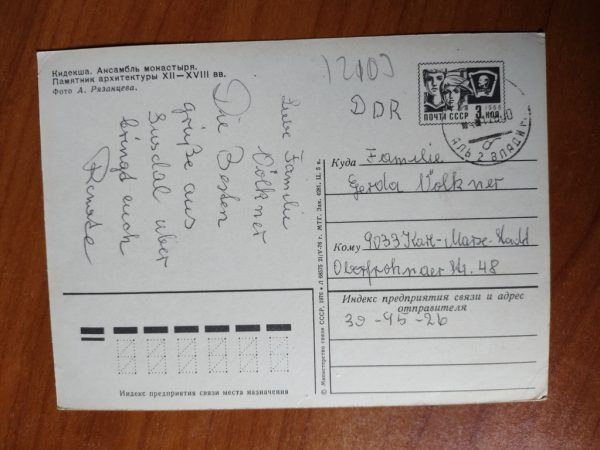 Кидекша. Ансамбль монастыря.
Памятник архитектуры XII—XVIII вв.
Фото А. Рязанцева.
Liebe Familie
Völkner
Die Besten
grüße aus
Susdal über
bringt euch
Renate
DDR
1966
ПОЧТА СССР 3 КОП.
Куда Familie
Gerda Völkner
Кому 9033 Karl-Marx-Stadt
Oberfrohnaer Str. 48
Индекс предприятия связи и адрес
отправителя
39-95-26
Индекс предприятия связи места назначения
© Министерство связи СССР, 1976